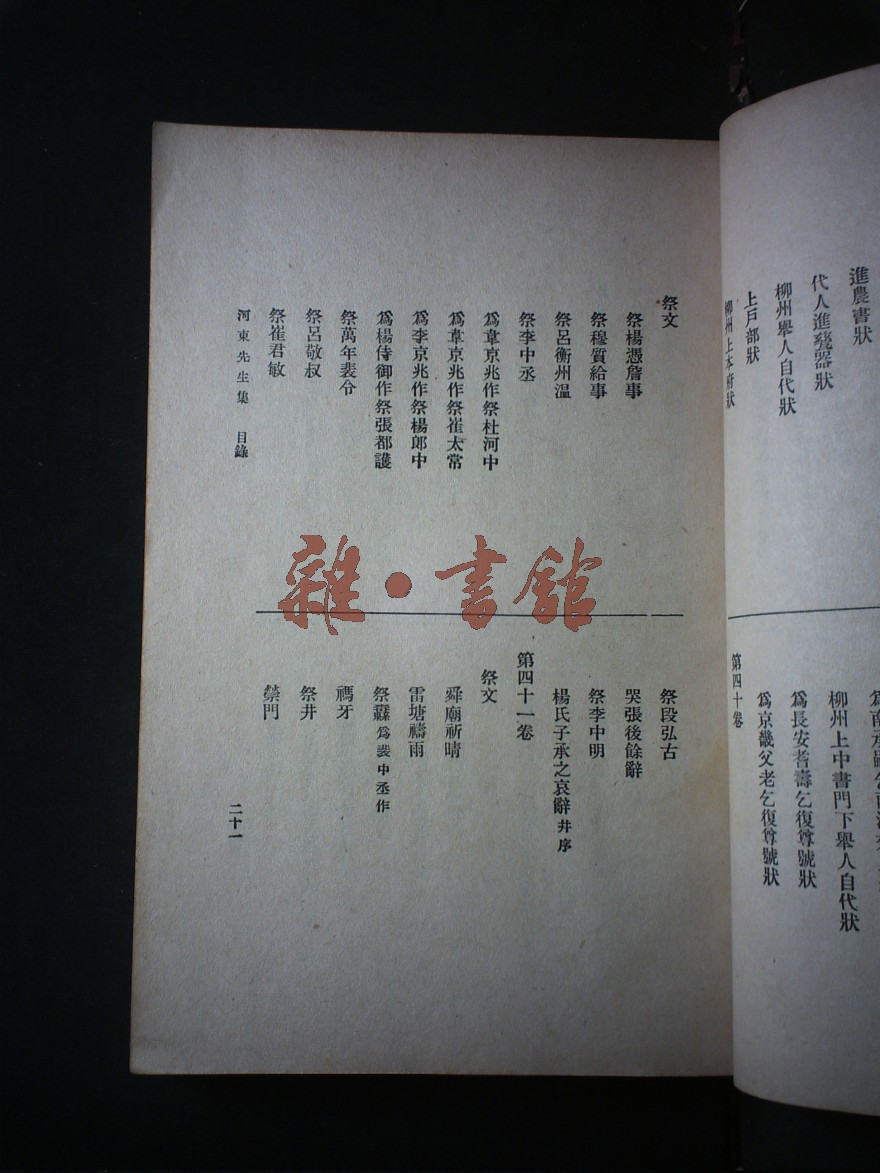 進農書狀
代人進甆器狀
柳州舉人自代狀
上戶部狀
柳州上本府狀
柳州上中書門下舉人自代狀
爲長安耆壽乞復尊號狀
爲京畿父老乞復尊號狀
第四十卷
祭文
祭楊憑詹事
祭穆質給事
祭呂衡州温
祭李中丞
爲韋京兆作祭杜河中
爲韋京兆作祭崔太常
爲李京兆作祭楊郎中
爲楊侍御作祭張都護
祭萬年裴令
祭呂敬叔
祭崔君敏
祭段弘古
哭張後餘辭
祭李中明
楊氏子承之哀辭并序
第四十一卷
祭文
舜廟祈晴
雷塘禱雨
祭纛爲裴中丞作
禡牙
祭井
禜門
河東先生集 目錄
二十一
雜·書館